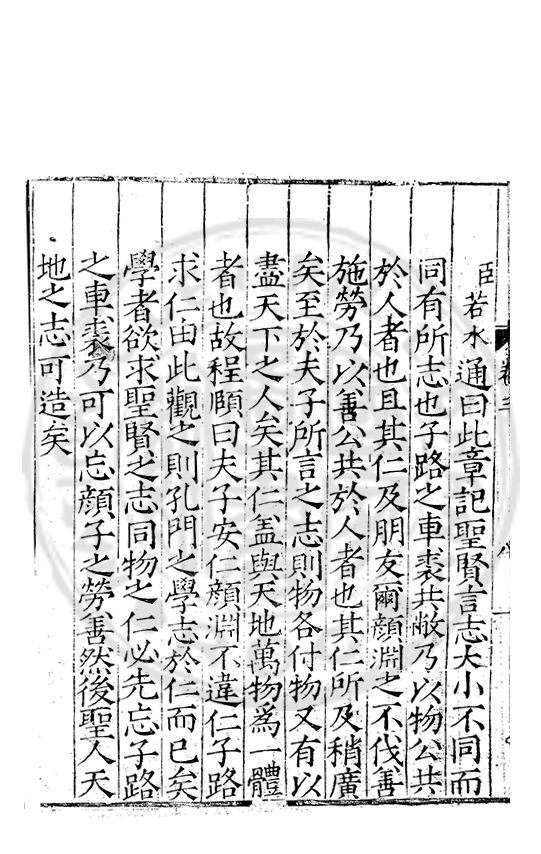 臣若水通曰此章記聖賢言志大小不同而
同有所志也子路之車裘共敝乃以物公共
於人者也且其仁及朋友爾顔淵之不伐善
施勞乃以善公共於人者也其仁所及稍廣
矣至於夫子所言之志則物各付物又有以
盡天下之人矣其仁盖與天地萬物爲一體
者也故程頤曰夫子安仁顔淵不違仁子路
求仁由此觀之則孔門之學志於仁而已矣
學者欲求聖賢之志同物之仁必先忘子路
之車裘乃可以忘顔子之勞善然後聖人天
地之志可造矣